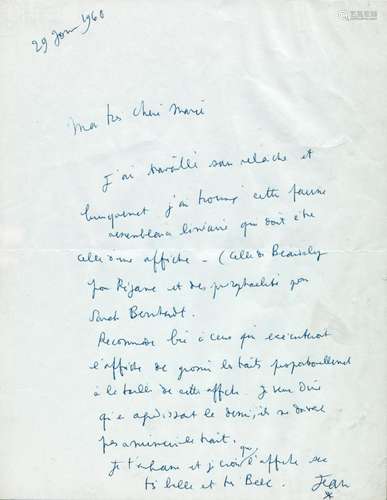 29 Juin 1960
Ma très chère Marie
J'ai travaillé sans relâche et
j'ai trouvé cette
ressemblance linéaire qui doit être
celle d'une affiche - (celle de Beardsley
pour Réjane et des pour
Sarah Bernhardt.
bien à ceux qui exécuteront
l'affiche de grossir les traits proportionnel
à la taille de cette affiche. Je veux Dire
qu'en agrandissant le dessin, il ne
pas amincir le trait.
Je t'embrasse et je crois que l'affiche sera
très belle et très Jean